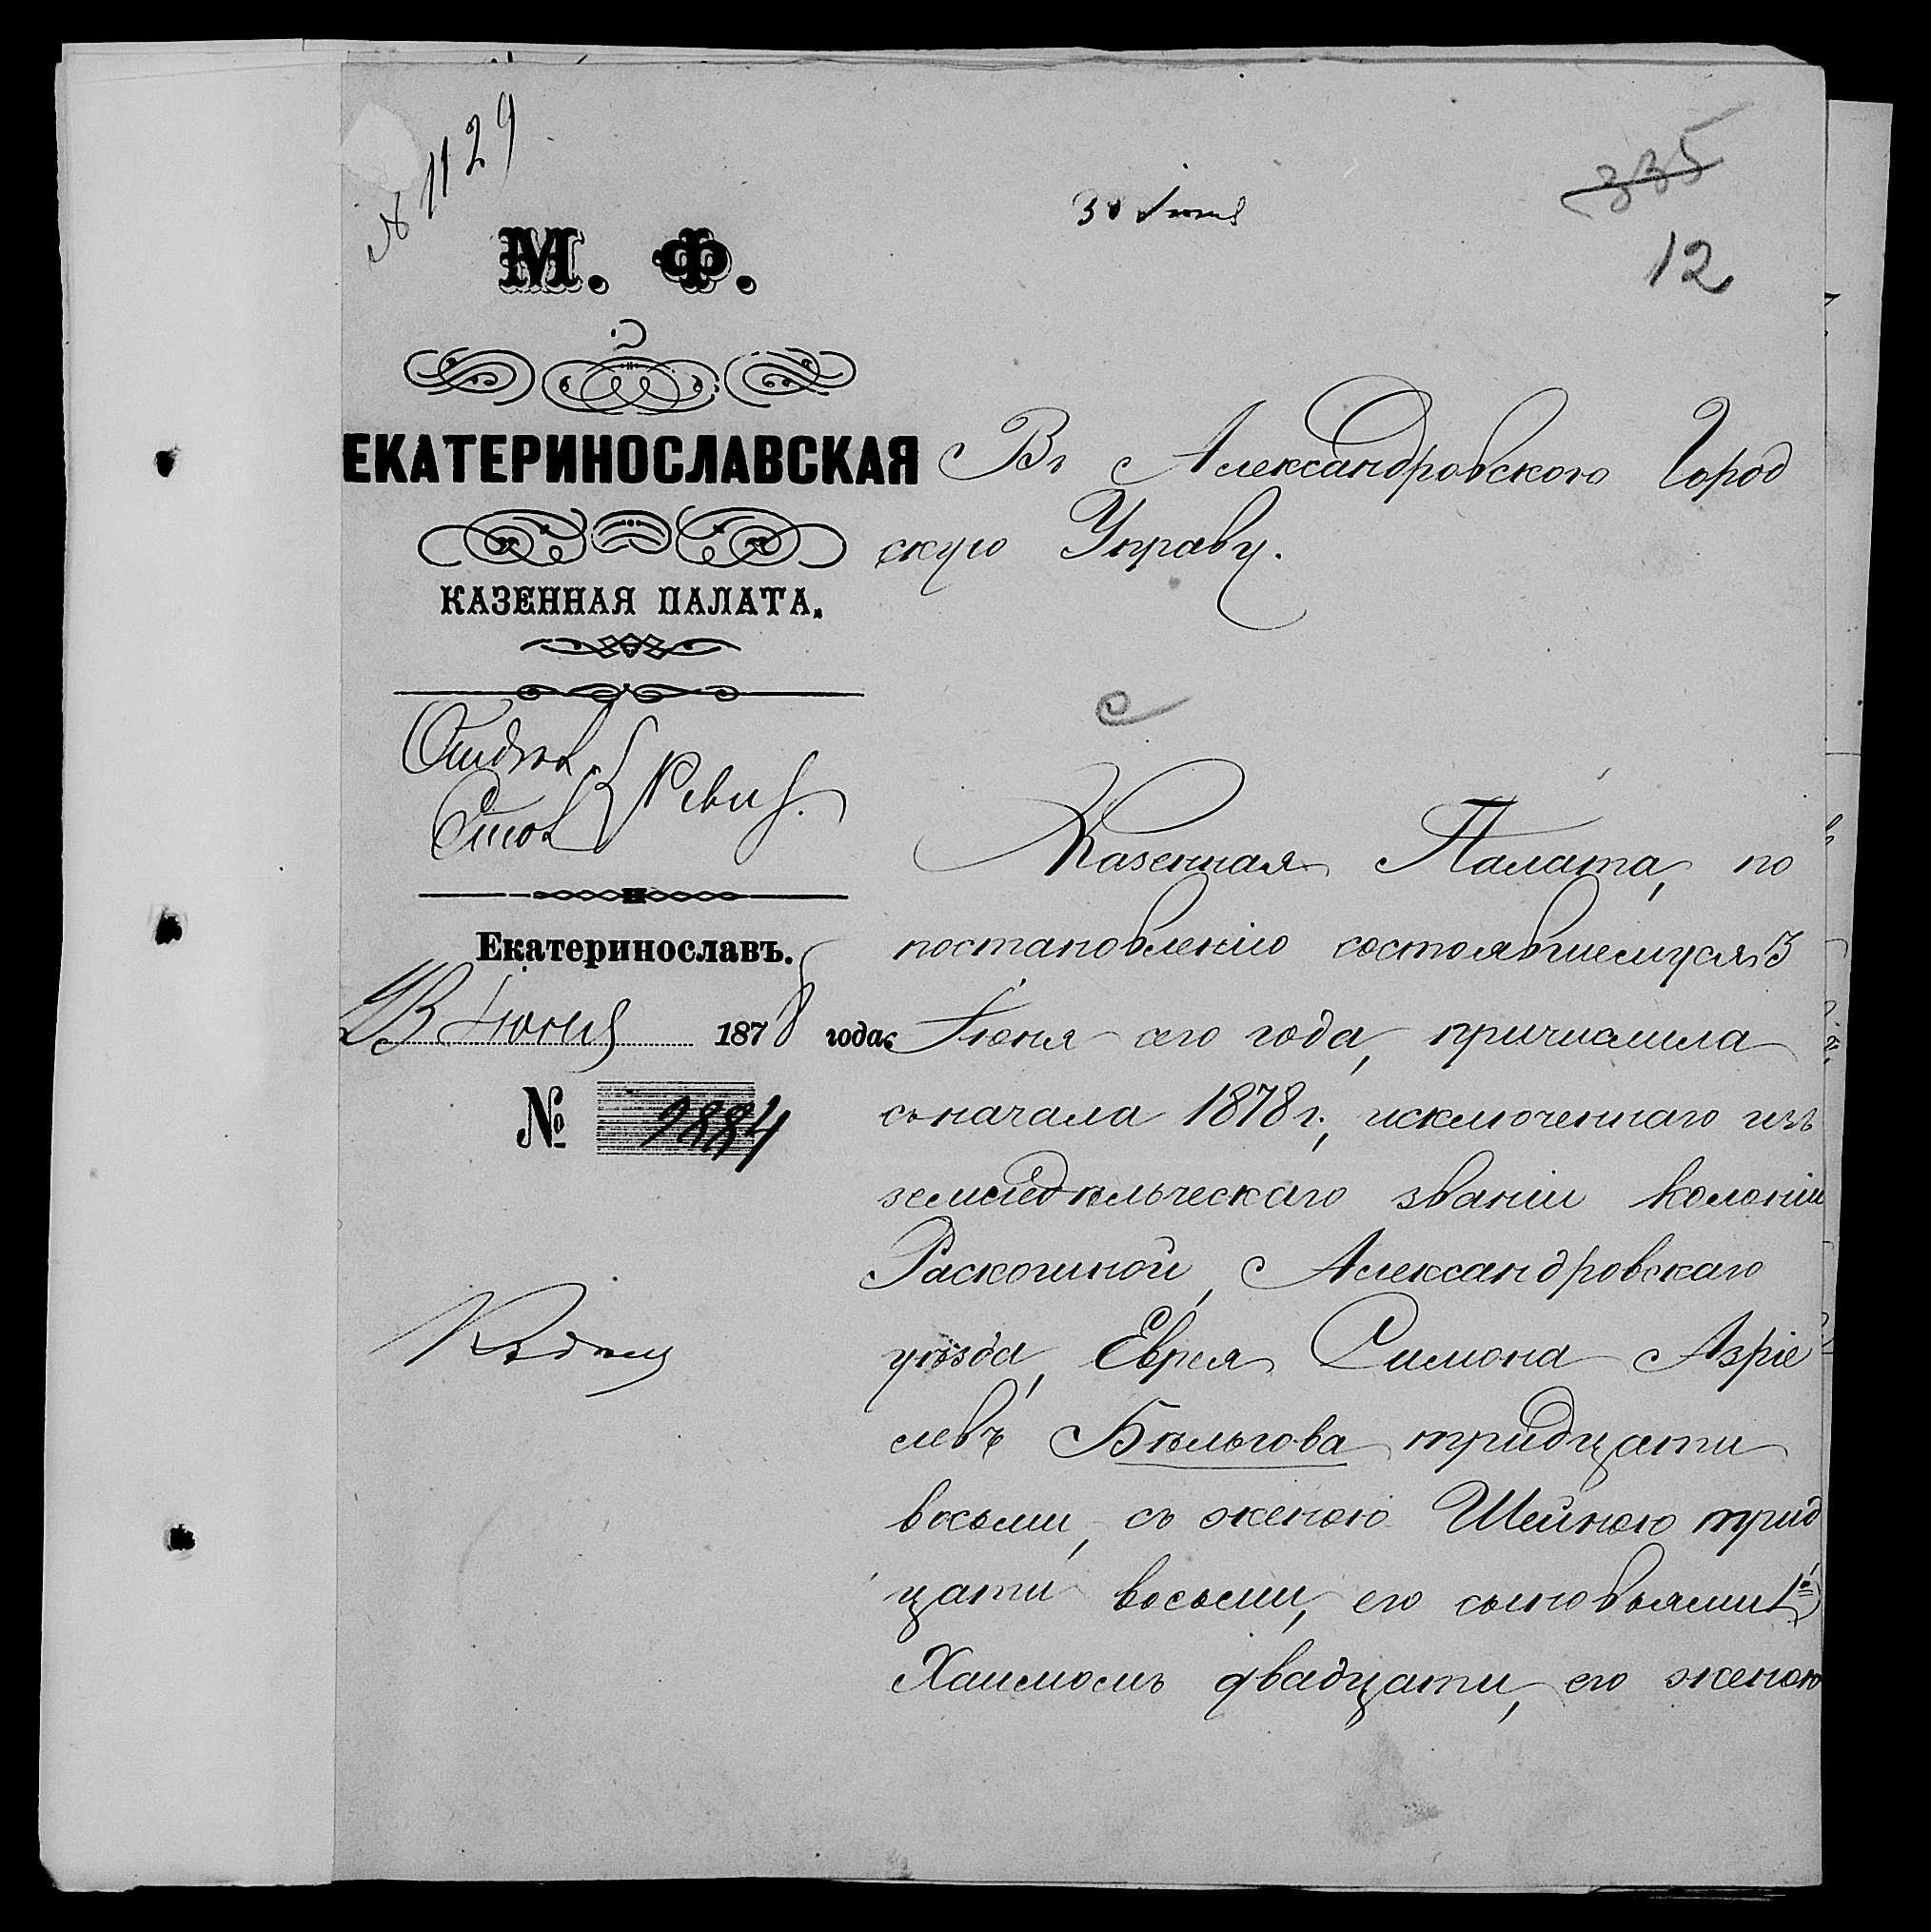 № 1129
30 Іюня
335
12
М. Ф.
ЕКАТЕРИНОСЛАВСКАЯ
КАЗЕННАЯ ПАЛАТА.
Ревиз.
Екатеринославъ.
23 Іюня 1878 года.
№ 9884
Въ Александровскою Город
скую Управу.
Казенная Палата, по
постановленію состоявшемуся 3
Іюня сего года, причислила
съ начала 1878 г., исключеннаго изъ
земледѣльческаго званіи колоніи
Раскошной, Александровскаго
уѣзда, Еврея Симона Азріе
левъ Бѣльгова тридцати
восьми, съ женою Шейною трид
цати восьми, его сыновьями 1й)
Хаимомъ двадцати, его женою